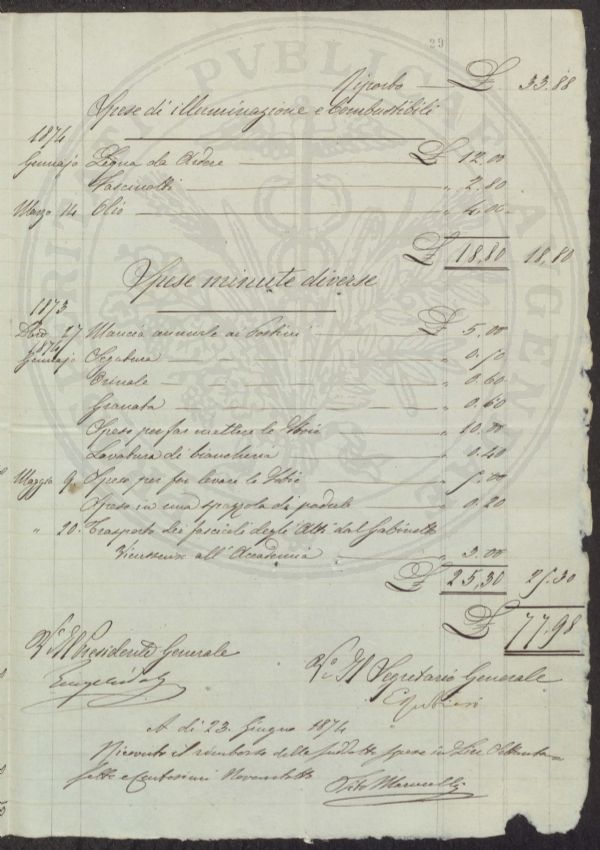 29
Riporto £ 33.88
Spese di illuminazione e Combustibili
1874
Gennajo Legna da Ardere £ 12,00
Fascinotti " 2.80
Marzo 14 Olio " 4.00
£ 18,80 18,80
Spese minute diverse
1873
Dbre 27 Mancia annuale ai Postini £ 5.00
1874
Gennajo Segatura " 0.50
Orinale " 0.60
Granata " 0.60
Spese per far mettere le Stoie " 10,00
Lavatura di biancheria " 0.40
Maggio 9. Spese per far levare le Stoie " 5.00
Spese in una spazzola di padule " 0.20
" 20. Trasporto dei fascicoli degli Atti dal Gabinetto
Vieusseux all'Accademia " 3.00
£ 25,30 25.30
£ 77.98
V° Il Presidente Generale
V° Il Segretario Generale
A di 23. Giugno 1874
Ricevuto il rimborso delle suddette spese in Lire Settanta=
sette e Centesimi Novantotto